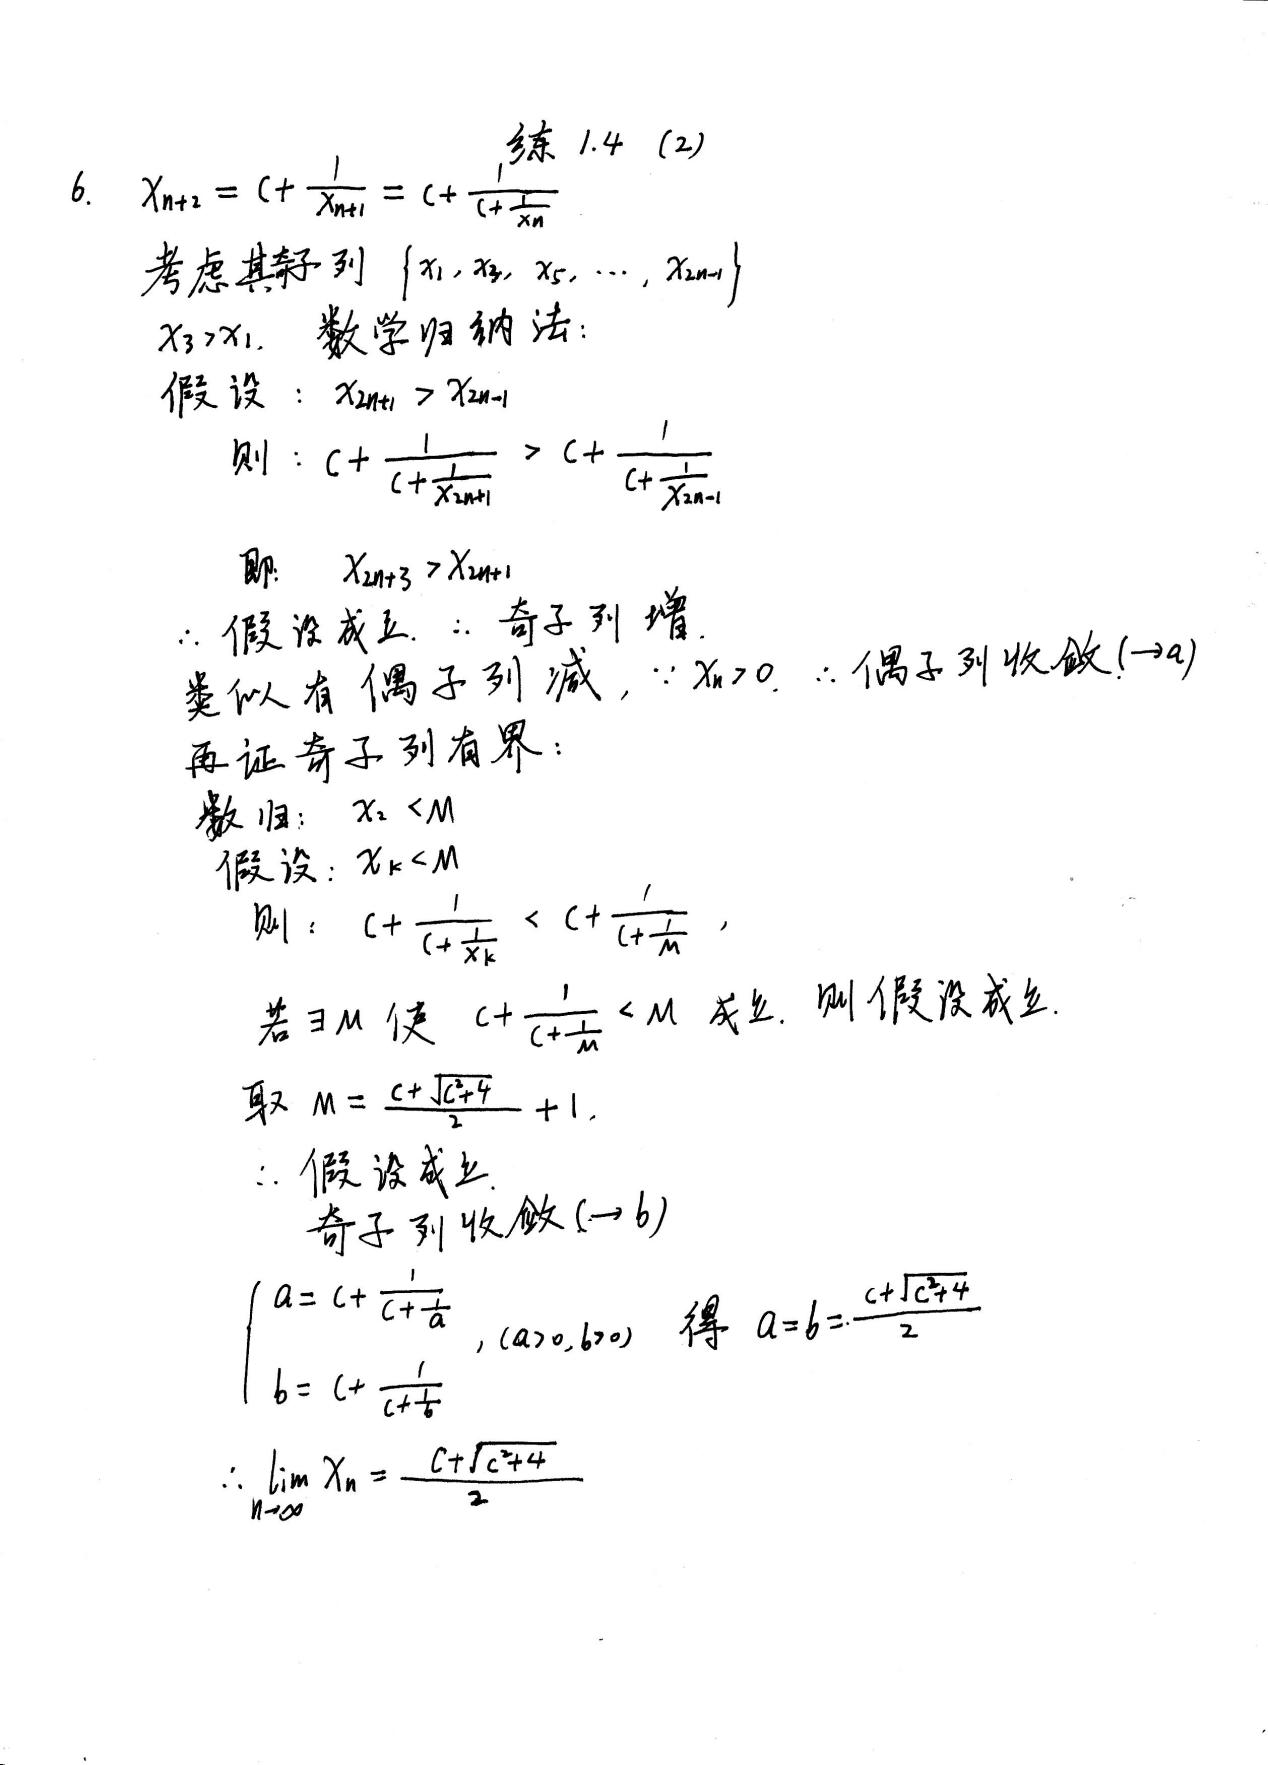 练 1.4 (2)
6. x_{n+2} = C + \frac{1}{x_{n+1}} = C + \frac{1}{C + \frac{1}{x_n}}
考虑其奇子列 {x_1, x_3, x_5, ..., x_{2n-1}}
x_3 > x_1. 数学归纳法:
假设: x_{2n+1} > x_{2n-1}
则: C + \frac{1}{C + \frac{1}{x_{2n+1}}} > C + \frac{1}{C + \frac{1}{x_{2n-1}}}
即: x_{2n+3} > x_{2n+1}
∴ 假设成立. ∴ 奇子列增.
类似有偶子列减, ∵ x_n > 0. ∴ 偶子列收敛.(→a)
再证奇子列有界:
数归: x_2 < M
假设: x_k < M
则: C + \frac{1}{C + \frac{1}{x_k}} < C + \frac{1}{C + \frac{1}{M}} ,
若∃M使 C + \frac{1}{C + \frac{1}{M}} < M 成立. 则假设成立.
取 M = \frac{C + \sqrt{C^2+4}}{2} + 1.
∴ 假设成立.
奇子列收敛(→b)
{ a = C + \frac{1}{C + \frac{1}{a}}
, (a>0, b>0) 得 a = b = \frac{C + \sqrt{C^2+4}}{2}
b = C + \frac{1}{C + \frac{1}{b}}
∴ \lim_{n→∞} x_n = \frac{C + \sqrt{C^2+4}}{2}